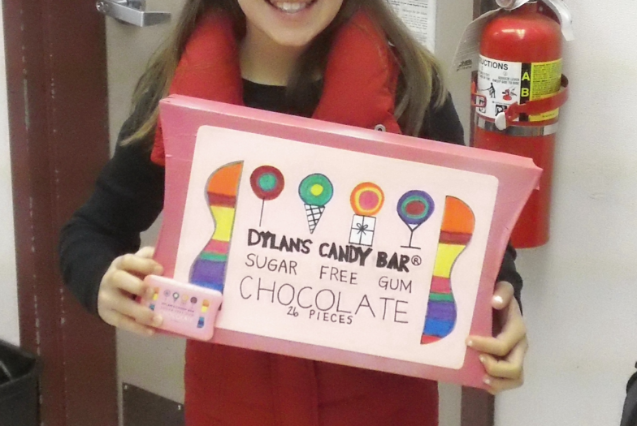 DYLAN'S CANDY BAR®
SUGAR FREE GUM
CHOCOLATE
26 PIECES
A
B